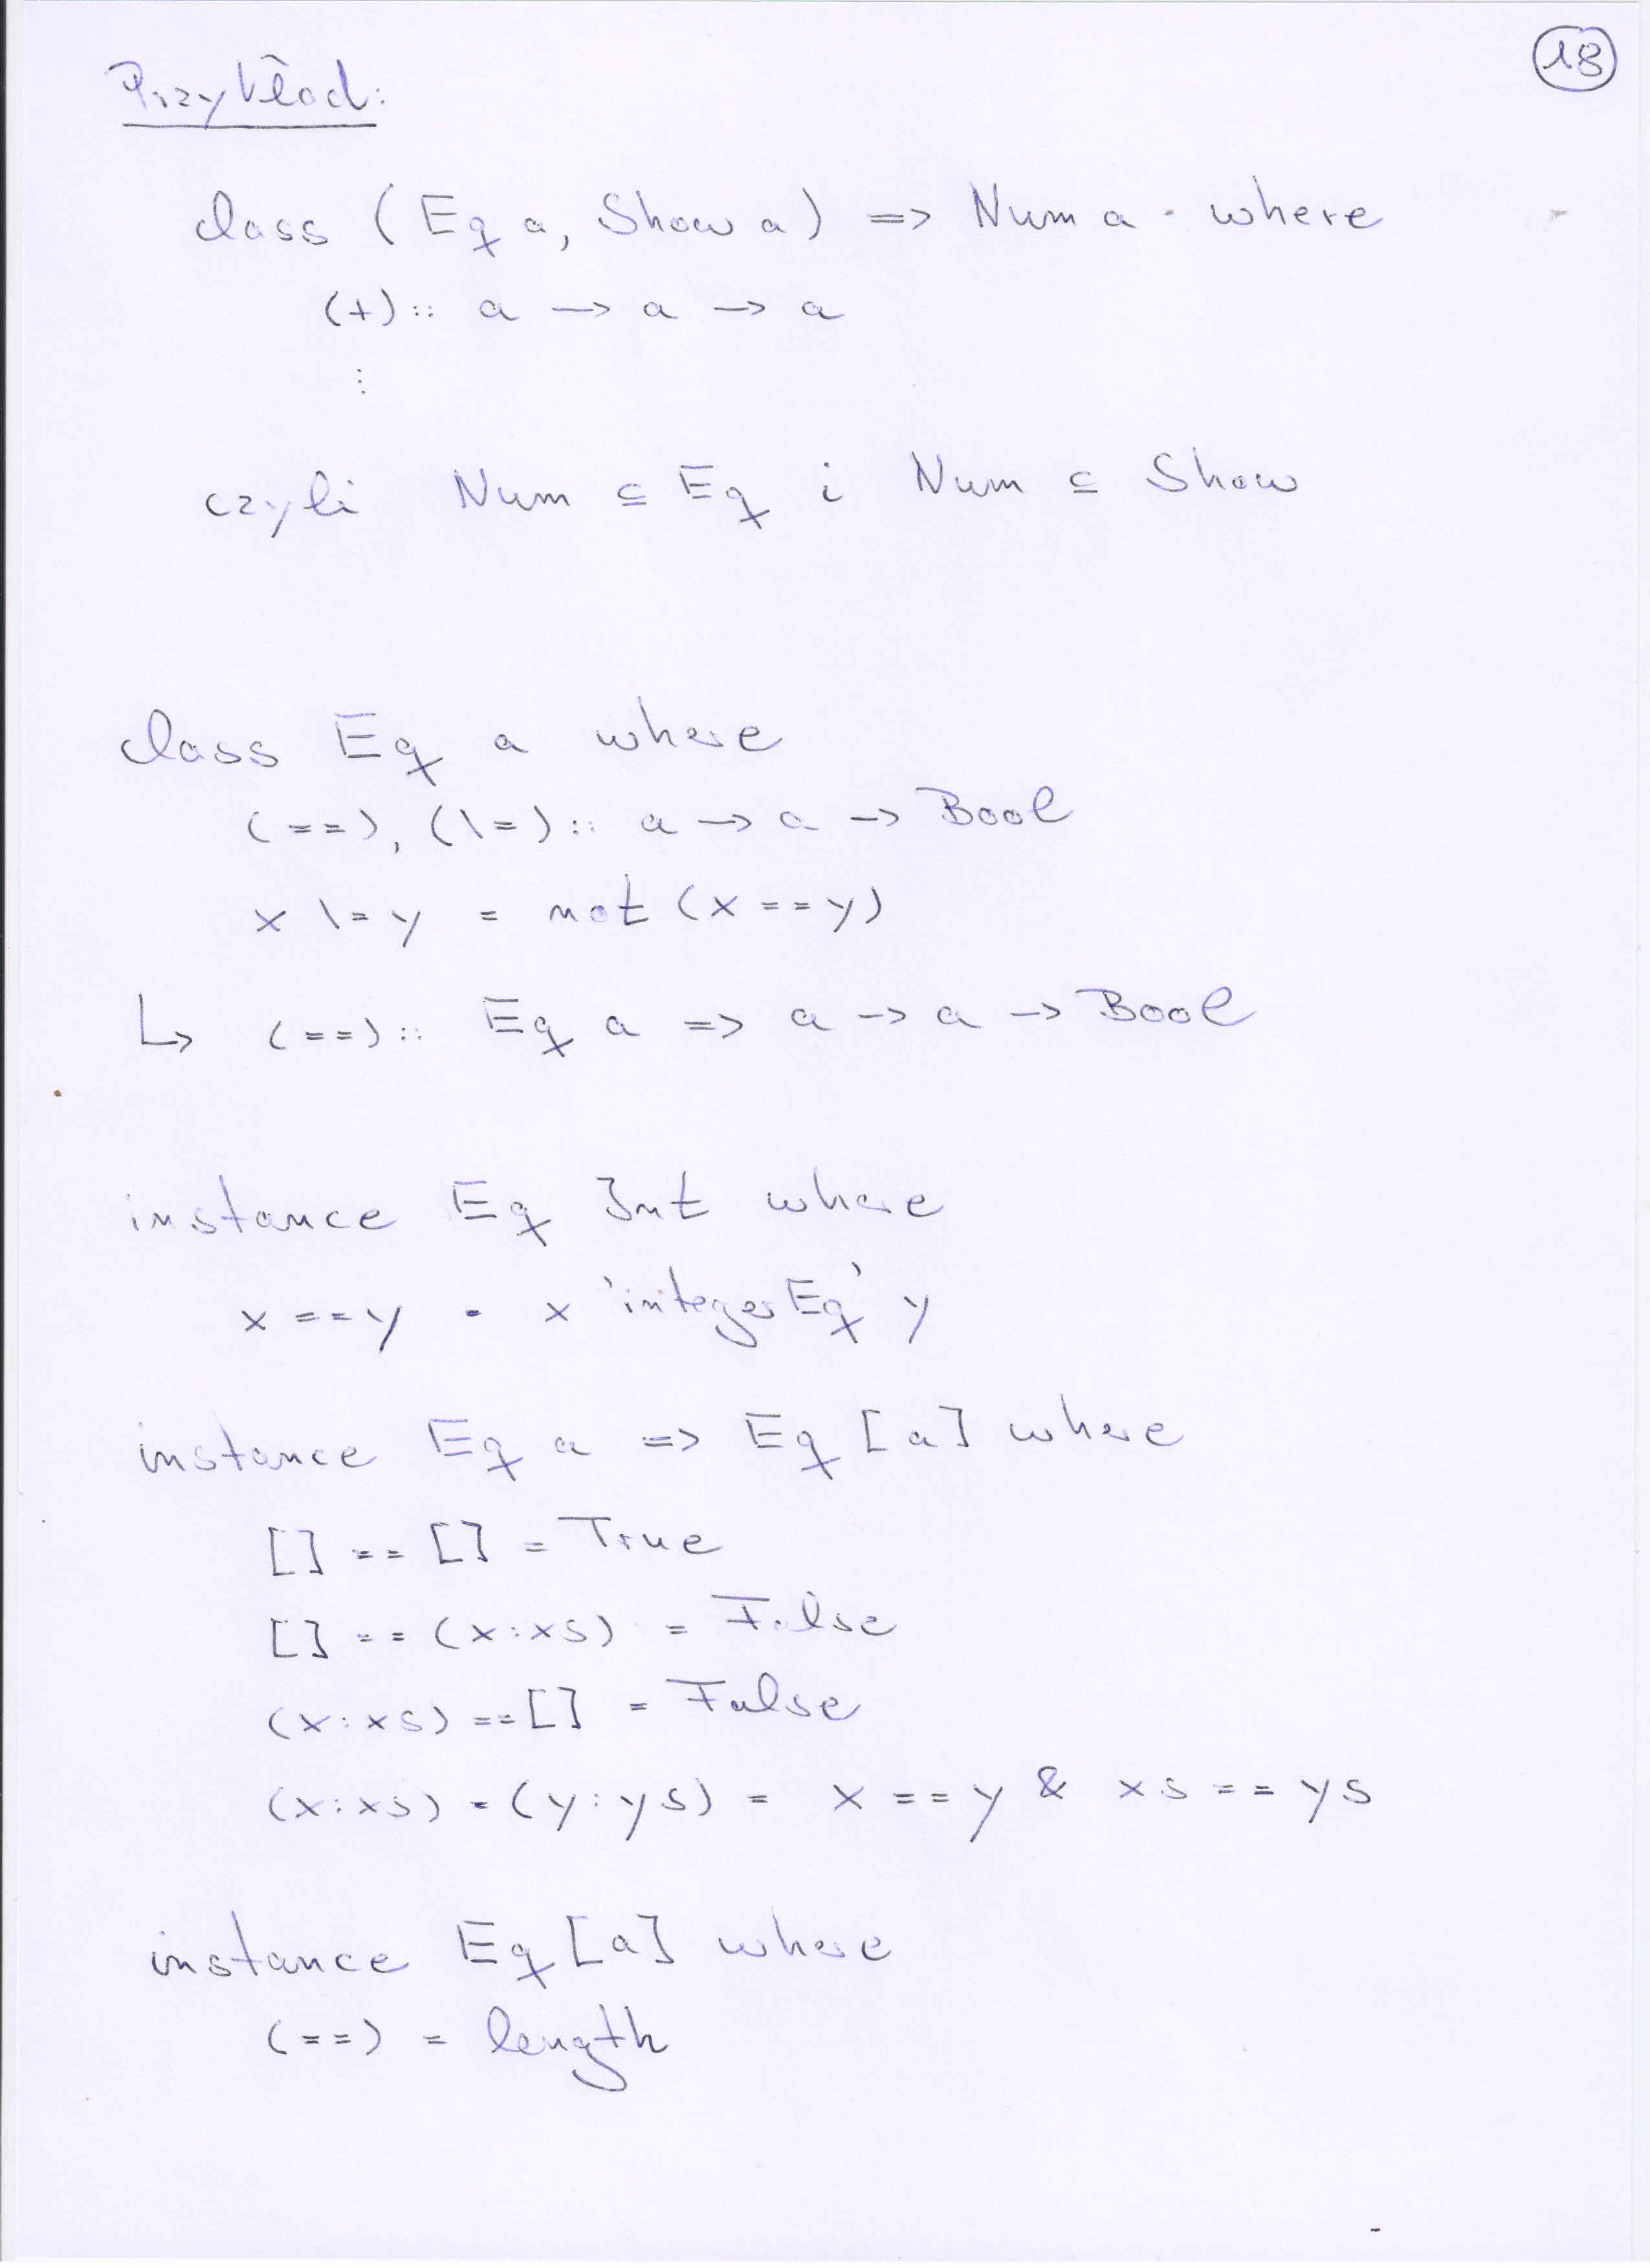 18
Przykład:
class (Eq a, Show a) => Num a where
(+) :: a -> a -> a
⋮
czyli Num ⊆ Eq i Num ⊆ Show
class Eq a where
(==), (\=) :: a -> a -> Bool
x \= y = not (x == y)
↳ (==) :: Eq a => a -> a -> Bool
instance Eq Int where
x == y = x 'integerEq' y
instance Eq a => Eq [a] where
[] == [] = True
[] == (x:xs) = False
(x:xs) == [] = False
(x:xs) = (y:ys) = x == y & xs == ys
instance Eq [a] where
(==) = length